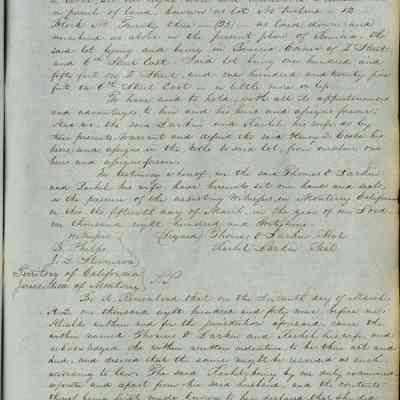 a parcel of land, known as Lot No twelve – 12 –
Block No Twenty three – (23) – as laid down and
numbered as above in the present plan of Benicia. the
said lot lying and being in Benicia Corner of I Street
and 6th Street East. Said lot being one hundred and
fifty feet on I Street, and one hundred and twenty five
feet on 6th Street East – a little more or less.
To have and to hold, with all its appurtenances
and advantages to him and his heirs and assigns forever.
And we the said Larkin and Rachel his wife do by
these presents warrant and defend the said Henry
heirs and assigns in the title to said lot, from
heirs and assigns forever.
In testimony whereof we the said Thomas O Larkin
and Rachel his wife, have hereunto set our hands and seals,
in the presence of the assisting witnesses, in Monterey California
on this the fifteenth day of March, in the year of our Lord
one thousand eight hundred and forty nine.
Witnesses (Signed) Thomas O Larkin Seal
S. Phelps Rachel Larkin Seal
J. D. Stevenson
Territory of California
Jurisdiction of Monterey
Be it Remembered that on the Seventh day of March
A.D. one thousand eight hundred and forty nine, before me,
Alcalde within and for the jurisdiction aforesaid, came the
within named Thomas O Larkin and Rachel his wife and
acknowledged the within written indenture to be their act and
deed, and desired that the same might be recorded as such
according to law. The said Rachel, being by me duly examined
separate and apart from her said husband, and the contents
thereof being first made known to her declared that she did